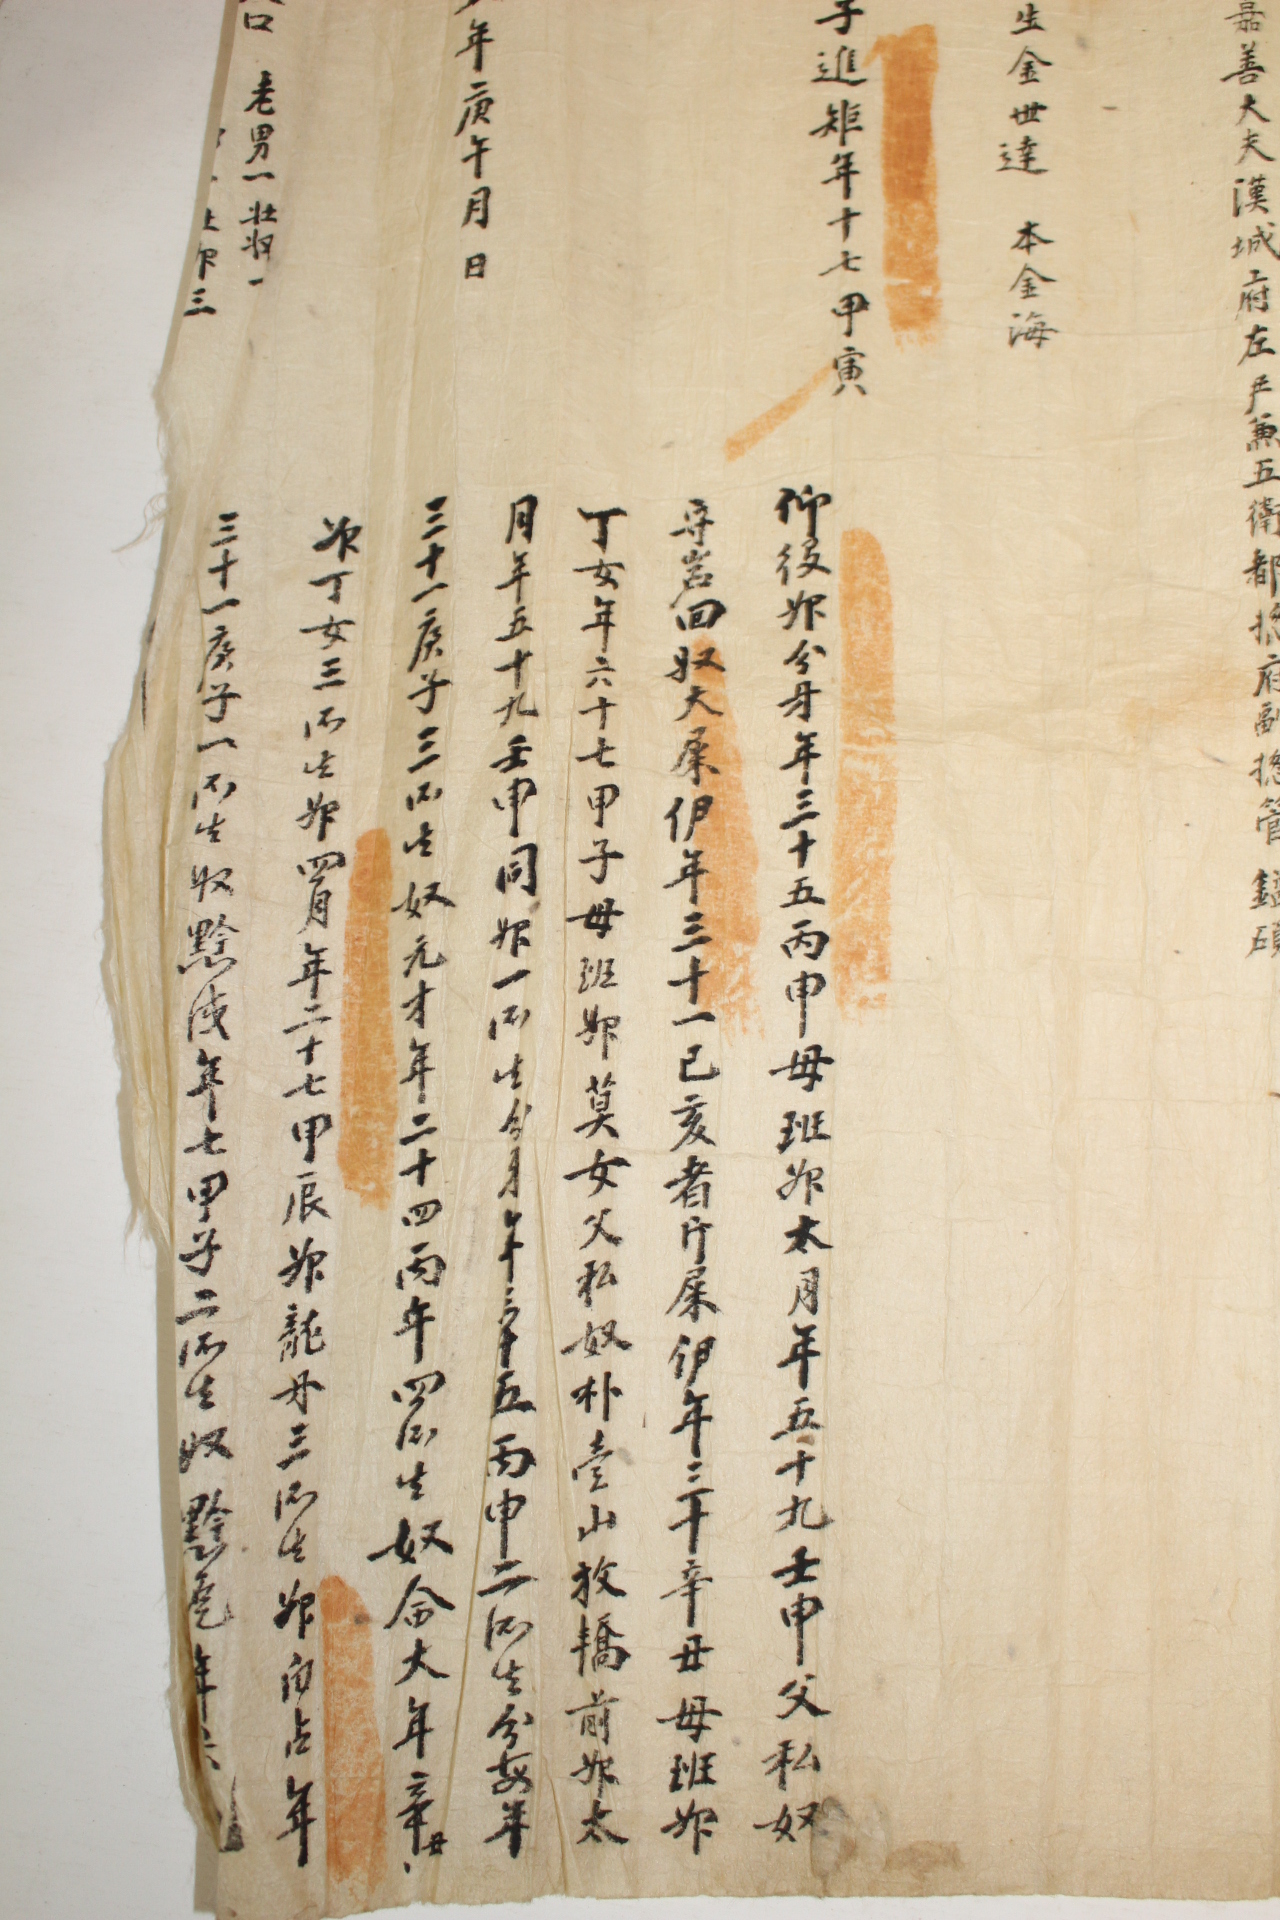 嘉善大夫漢城府左尹兼五衛都捴府副捴管
生金世達 本金海
子進矩年十七甲寅
仰役婢分牙年三十五丙申母班婢太月年五十九壬申父私奴
回奴大屎伊年三十一己亥者斤屎伊年三十辛丑母班婢
丁女年六十七甲子母班婢莫女父私奴朴山放轎前婢太
月年五十九壬申同婢一所生分月年三十五丙申二所生分每年
三十一庚子三所生奴元才年二十四丙午四所生奴金大年辛丑
年庚午月日
婢丁女三所生婢四月年二十七甲辰婢龍丹三所生婢白占年
口 老男一壯奴一
三十一庚子一所生奴黔年七甲子二所生奴黔年六
壯婢三